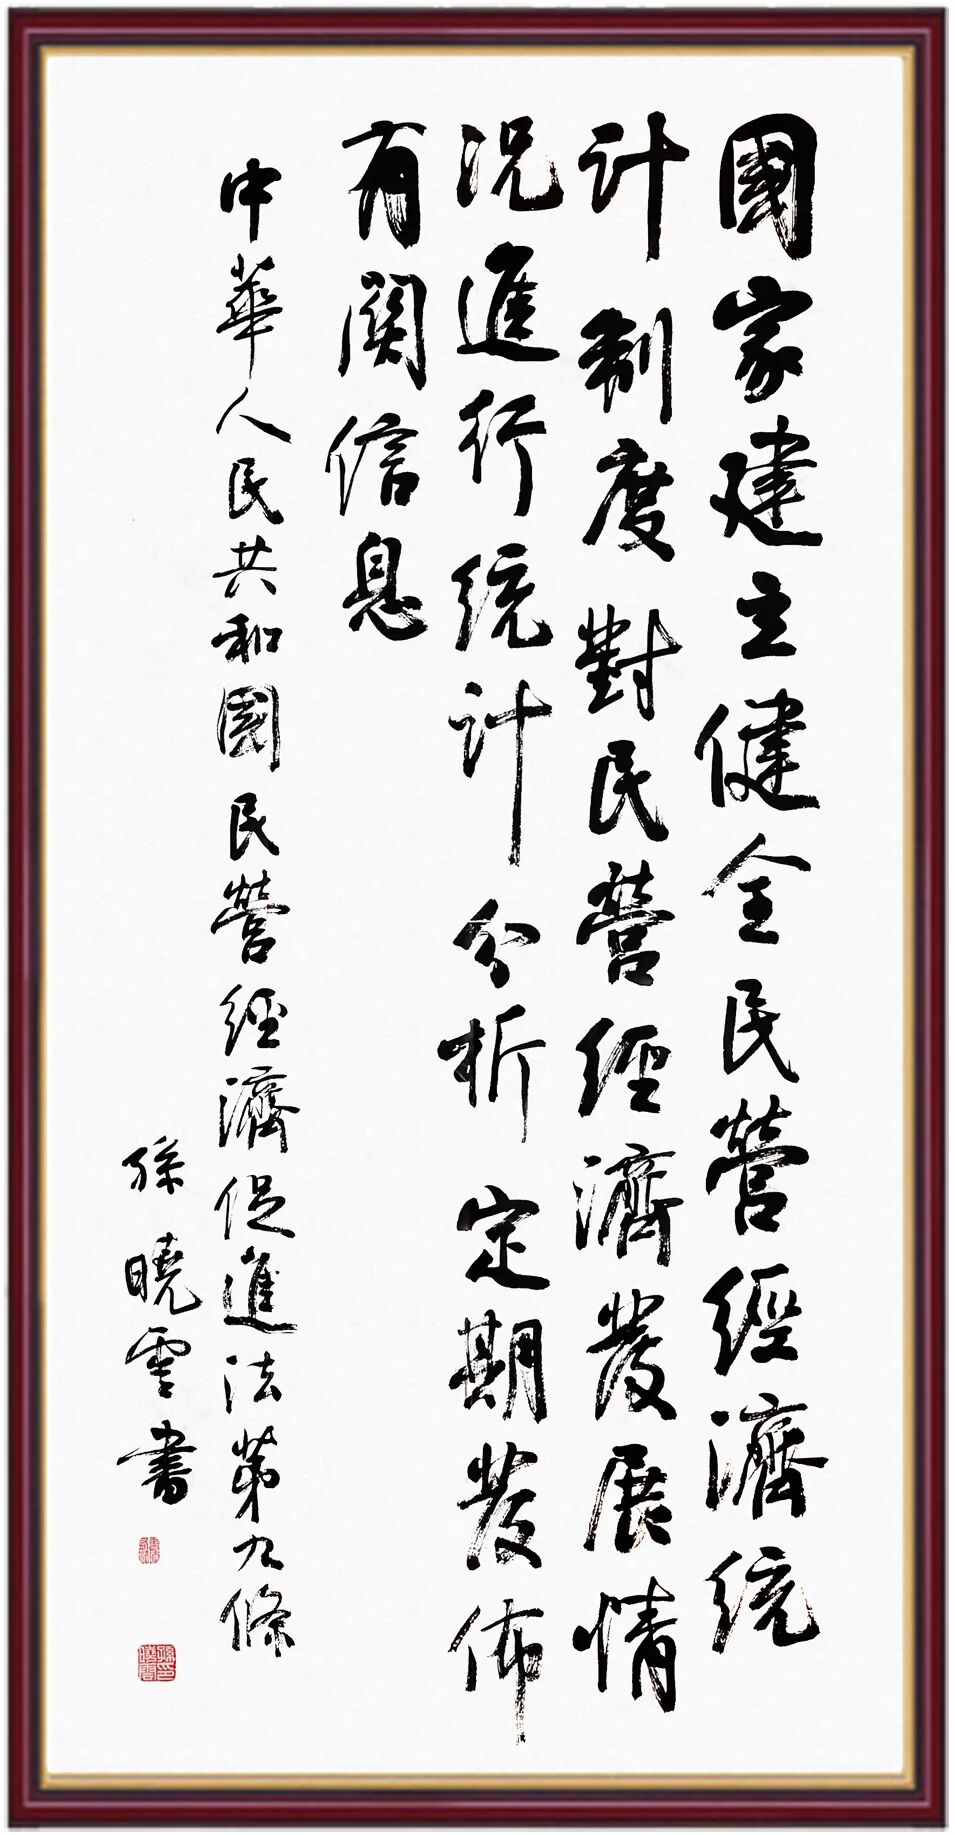 國家建立健全民營經濟統
計制度對民營經濟發展情
況進行統計分析定期發佈
有關信息
中華人民共和國民營經濟促進法第九條
孫曉雲書